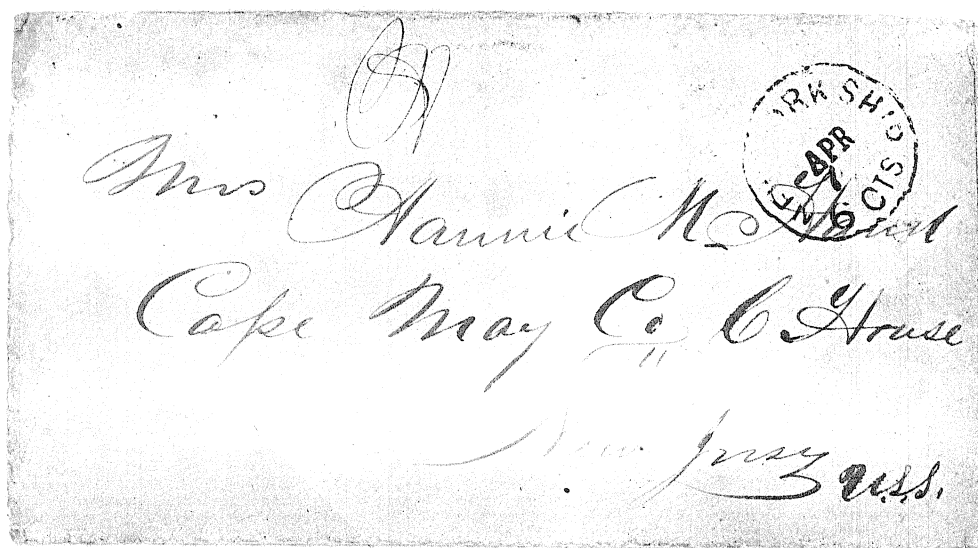 N. YORK SHIP
APR
7
6 CTS
Mrs Nannie M.
Cape May Co. C House
New Jersy
U.S.